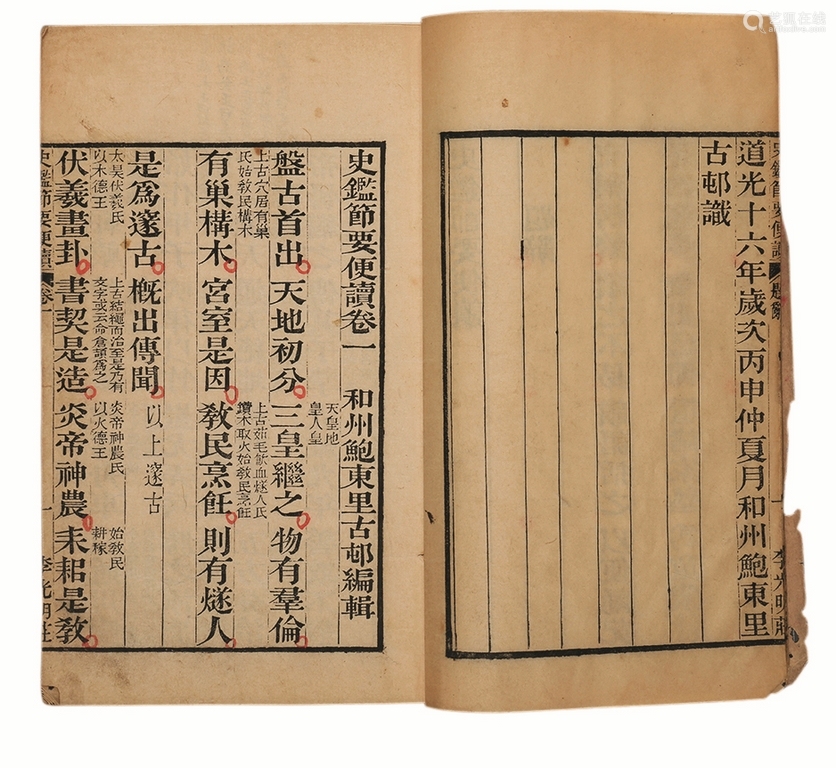 道光十六年歲次丙申仲夏月和州鮑東里
古邨識
史鑑節要便讀卷一 和州鮑東里古邨編輯
盤古首出 天地初分 三皇繼之 天皇地皇人皇 物有羣倫
上古穴居有巢氏始教民構木
有巢構木 宮室是因 上古茹毛飲血燧人氏鑽木取火始教民烹飪 教民烹飪 則有燧人
是爲邃古 概出傳聞 以上邃古
太昊伏羲氏以木德王 上古結繩而治至是乃有文字或云命倉頡爲之 炎帝神農氏以火德王 始教民耕稼
伏羲畫卦 書契是造 炎帝神農 耒耜是教
史鑑節要便讀 卷一 一 李光明莊
史鑑節要便讀 題辭 一 李光明莊